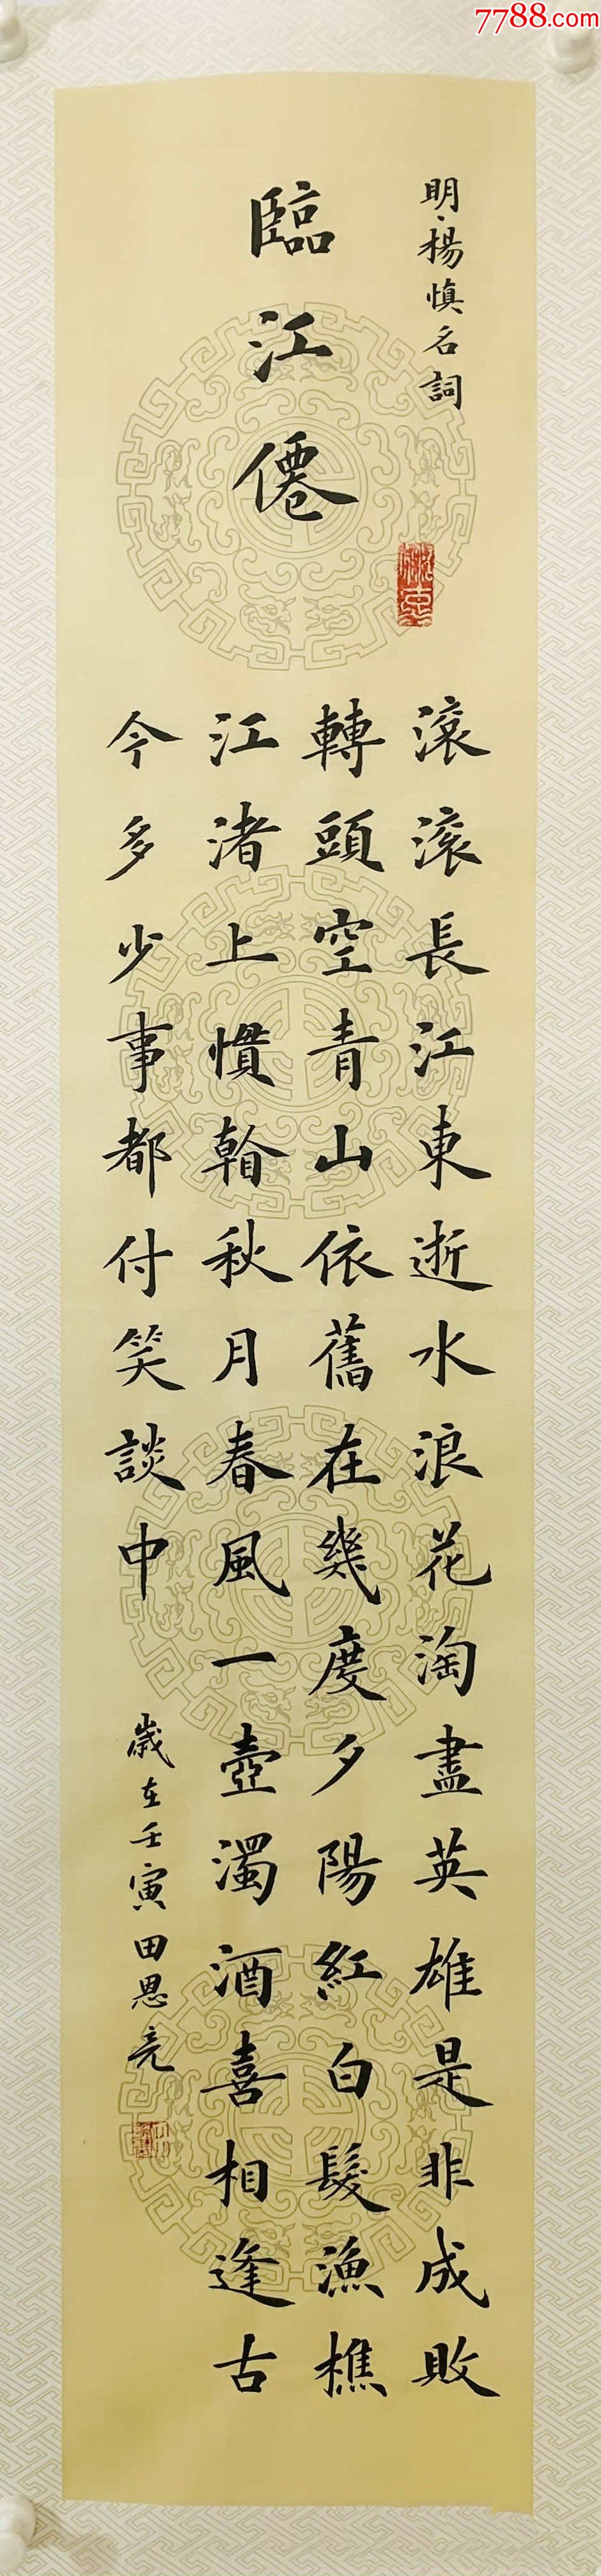 7788.com
明·楊慎名詞
臨江僊
滾滾長江東逝水浪花淘盡英雄是非成敗
轉頭空青山依舊在幾度夕陽紅白髮漁樵
江渚上慣看秋月春風一壺濁酒喜相逢古
今多少事都付笑談中
歲在壬寅田思亮